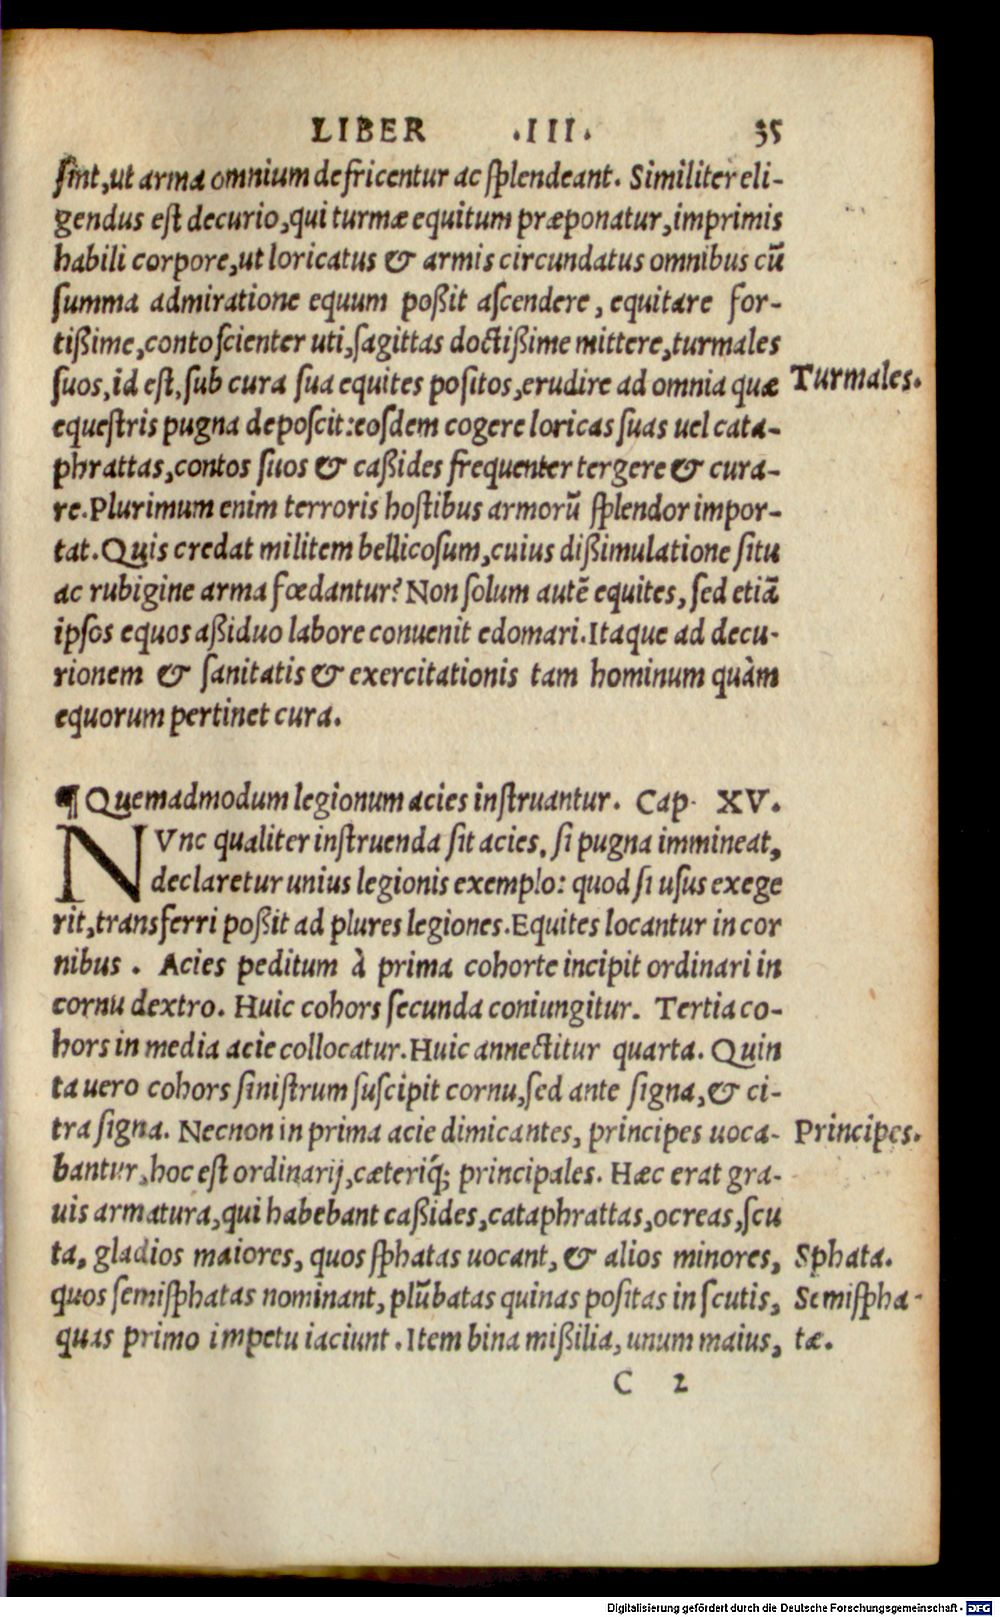 LIBER .III. 35
ſint,ut arma omnium defricentur ac ſplendeant. Similiter eli-
gendus eſt decurio,qui turmæ equitum præponatur,imprimis
habili corpore,ut loricatus & armis circundatus omnibus cū
ſumma admiratione equum poßit aſcendere, equitare for-
tißime,conto ſcienter uti,ſagittas doctißime mittere,turmales
ſuos,id eſt,ſub cura ſua equites poſitos,erudire ad omnia quæ Turmales.
equeſtris pugna depoſcit:eoſdem cogere loricas ſuas uel cata-
phrattas,contos ſuos & caßides frequenter tergere & cura-
re.Plurimum enim terroris hoſtibus armorū ſplendor impor-
tat.Quis credat militem bellicoſum,cuius dißimulatione ſitu
ac rubigine arma fœdantur? Non ſolum autē equites, ſed etiā
ipſos equos aßiduo labore conuenit edomari.Itaque ad decu-
rionem & ſanitatis & exercitationis tam hominum quàm
equorum pertinet cura.
¶ Quemadmodum legionum acies inſtruantur. Cap. XV.
NVnc qualiter inſtruenda ſit acies, ſi pugna immineat,
declaretur unius legionis exemplo: quod ſi uſus exege
rit,transferri poßit ad plures legiones.Equites locantur in cor
nibus. Acies peditum à prima cohorte incipit ordinari in
cornu dextro. Huic cohors ſecunda coniungitur. Tertia co-
hors in media acie collocatur.Huic annectitur quarta. Quin
ta uero cohors ſiniſtrum ſuſcipit cornu,ſed ante ſigna,& ci-
tra ſigna. Necnon in prima acie dimicantes, principes uoca- Principes.
bantur,hoc eſt ordinarij,cæteriq́; principales. Hæc erat gra-
uis armatura,qui habebant caßides,cataphrattas,ocreas,ſcu
ta, gladios maiores, quos ſphatas uocant, & alios minores, Sphata.
quos ſemiſphatas nominant, plūbatas quinas poſitas in ſcutis, Semiſpha-
quas primo impetu iaciunt. Item bina mißilia, unum maius, tæ.
C 2
Digitalisierung gefördert durch die Deutsche Forschungsgemeinschaft - DFG